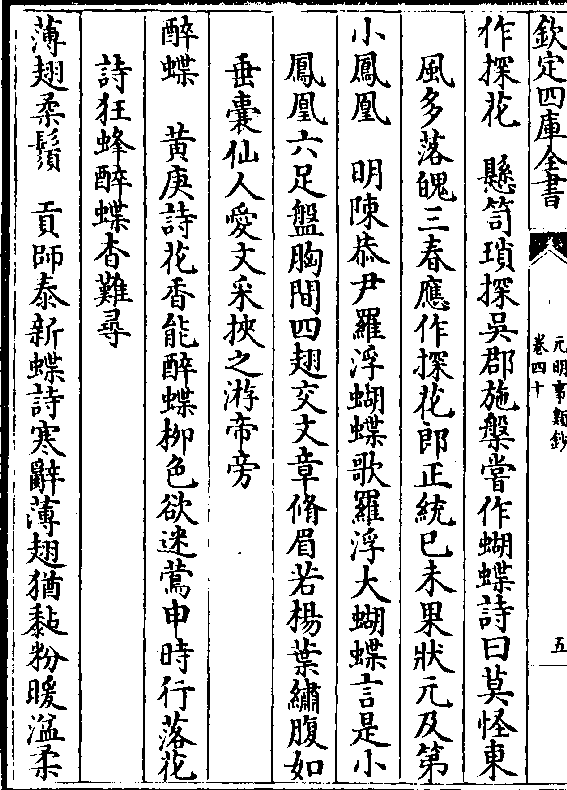 欽定四庫全書
元明事類鈔
卷四十
五
作探花　懸笥瑣探吳郡施槃嘗作蝴蝶詩曰莫怪東
風多落魄三春應作探花郎正統己未果狀元及第
小鳳凰　明陳恭尹羅浮蝴蝶歌羅浮大蝴蝶言是小
鳳凰六足盤胸間四翅交文章脩眉若楊葉繡腹如
垂囊仙人愛文采挾之游帝旁
醉蝶　黄庚詩花香能醉蝶柳色欲迷鶯申時行落花
詩狂蜂醉蝶杳難尋
薄翅柔鬚　貢師泰新蝶詩寒辭薄翅猶黏粉暖溢柔